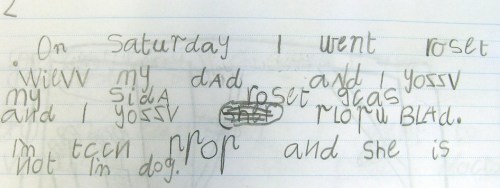 On Saturday I went roset
wievv my dAd and I yossv
my sidA roset gcas
and I yossv rloru BLAd.
im tccn rrop and she is
not im dog.